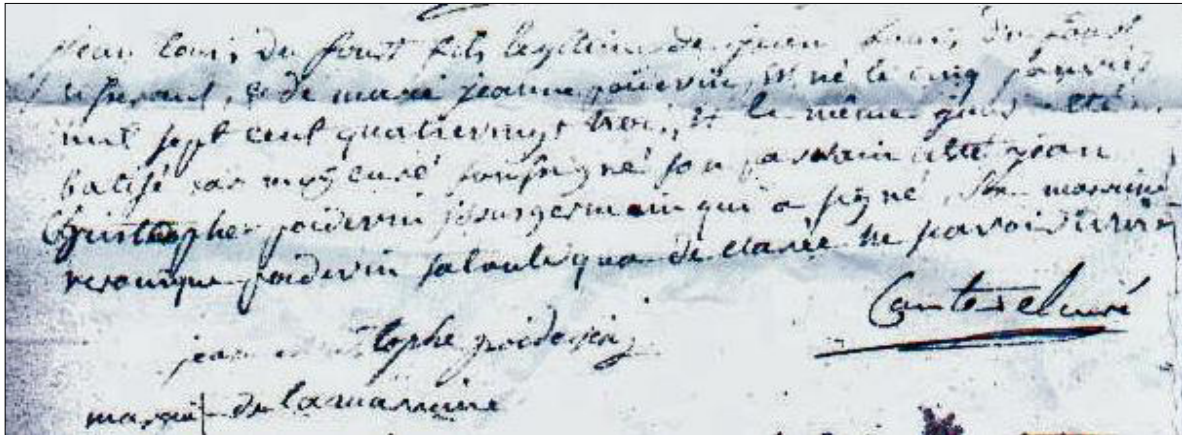 jean louis du foust fils legitime de jean louis du foust
et de marie jeanne poidevin, est né le cinq janvier
mil sept cent quatrevingt trois, et le même jour a été
batisé par moy curé soussigné son parrain a été jean
Christophe poidevin qui a signé, son marraine
veronique poidevin sa tante qua declarée ne savoir écrire
Curé
jean tophe poidevin
marque de la marraine